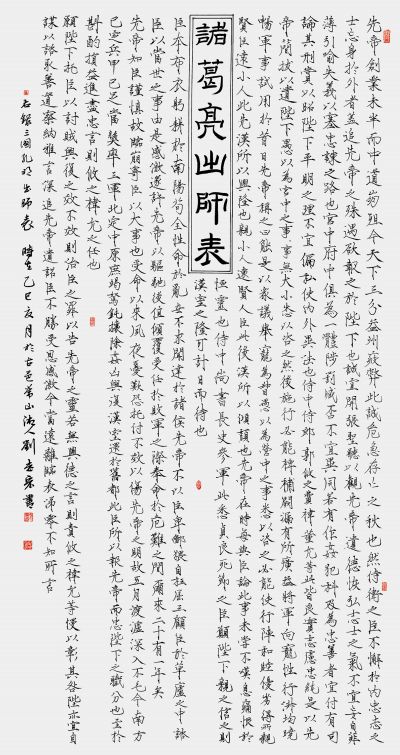 諸葛亮出師表
先帝創業未半而中道崩殂今天下三分益州疲弊此誠危急存亡之秋也然侍衛之臣不懈於內忠志之
士忘身於外者蓋追先帝之殊遇欲報之於陛下也誠宜開張聖聽以光先帝遺德恢弘志士之氣不宜妄自菲
薄引喻失義以塞忠諫之路也宮中府中俱為一體陟罰臧否不宜異同若有作姦犯科及為忠善者宜付有司
論其刑賞以昭陛下平明之理不宜偏私使內外異法也侍中侍郎郭攸之費禕董允等此皆良實志慮忠純是以先
帝簡拔以遺陛下愚以為宮中之事事無大小悉以咨之然後施行必能裨補闕漏有所廣益將軍向寵性行淑均曉
暢軍事試用於昔日先帝稱之曰能是以眾議舉寵為督愚以為營中之事悉以咨之必能使行陣和睦優劣得所親
賢臣遠小人此先漢所以興隆也親小人遠賢人此後漢所以傾頹也先帝在時每與臣論此事未嘗不嘆息痛恨於
桓靈也侍中尚書長史參軍此悉貞良死節之臣願陛下親之信之則
漢室之隆可計日而待也
臣本布衣躬耕於南陽苟全性命於亂世不求聞達於諸侯先帝不以臣卑鄙猥自枉屈三顧臣於草廬之中諮
臣以當世之事由是感激遂許先帝以驅馳後值傾覆受任於敗軍之際奉命於危難之間爾來二十有一年矣
先帝知臣謹慎故臨崩寄臣以大事也受命以來夙夜憂歎恐託付不效以傷先帝之明故五月渡瀘深入不毛今南方
已定兵甲已足當獎率三軍北定中原庶竭駑鈍攘除姦凶興復漢室還於舊都此臣所以報先帝而忠陛下之職分也至於
斟酌損益進盡忠言則攸之禕允之任也
願陛下託臣以討賊興復之效不效則治臣之罪以告先帝之靈若無興德之言則責攸之禕允等慢以彰其咎陛下亦宜自
謀以諮諏善道察納雅言深追先帝遺詔臣不勝受恩感激今當遠離臨表涕零不知所言
右錄三國孔明出師表 時在乙巳亥月於古邑 山 人劉 書